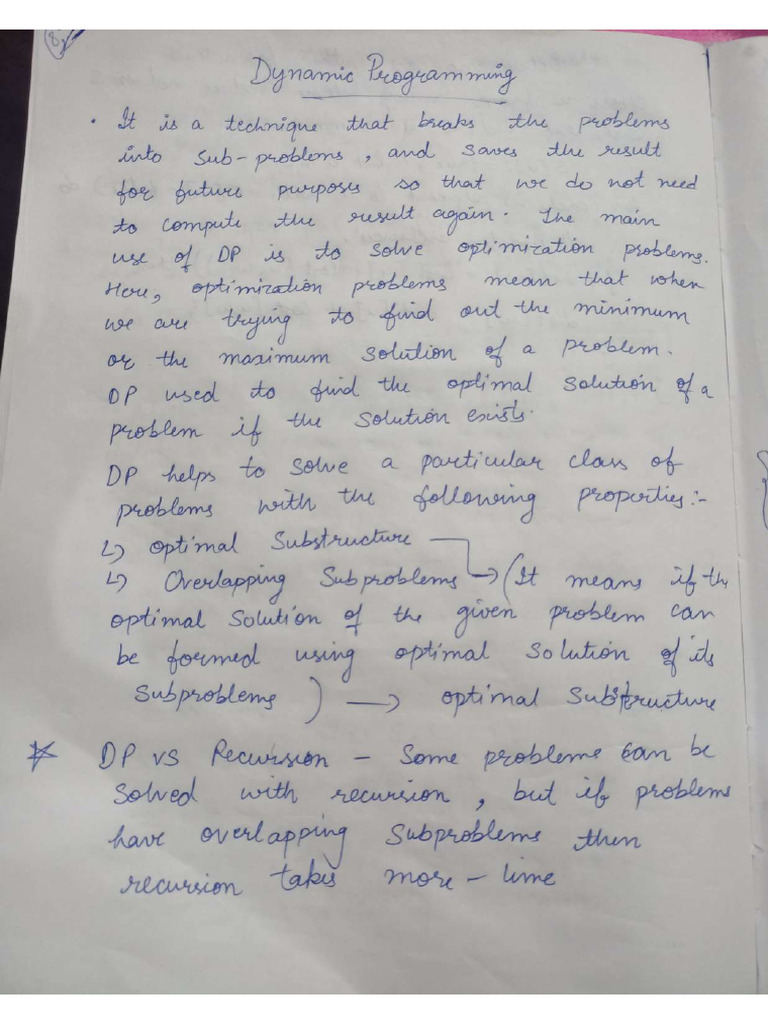 8
Dynamic Programming
• It is a technique that breaks the problems
into sub-problems, and saves the result
for future purposes so that we do not need
to compute the result again. The main
use of DP is to solve optimization problems.
Here, optimization problems mean that when
we are trying to find out the minimum
or the maximum solution of a problem.
DP used to find the optimal solution of a
problem if the solution exists.
DP helps to solve a particular class of
problems with the following properties:-
↳ optimal Substructure
↳ Overlapping Subproblems → (It means if the
optimal solution of the given problem can
be formed using optimal solution of its
subproblems) → optimal Substructure
* DP vs Recursion - Some problems can be
solved with recursion, but if problems
have overlapping subproblems then
recursion takes more - time